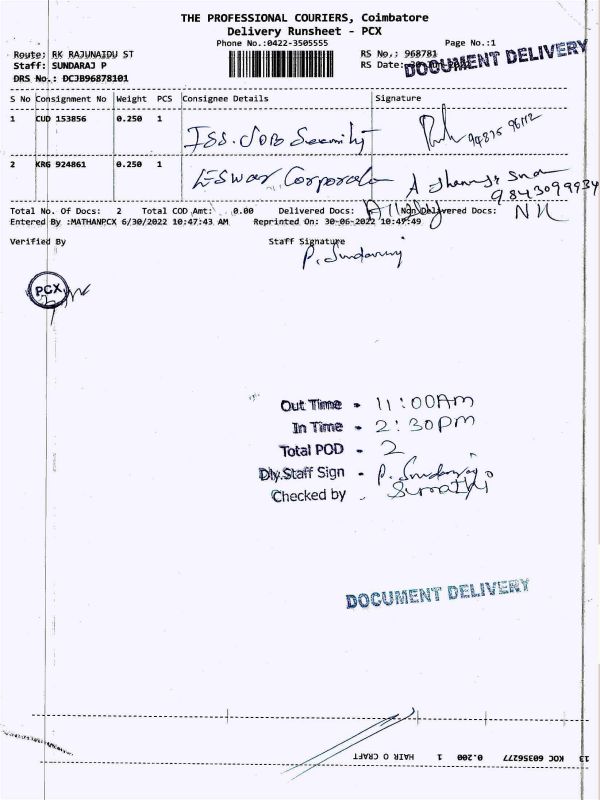 THE PROFESSIONAL COURIERS, Coimbatore
Delivery Runsheet - PCX
Phone No.:0422-3505555 Page No.:1
Route: RK RAJUNAIDU ST RS No.: 968781
Staff: SUNDARAJ P RS Date: DOCUMENT DELIVERY
DRS No.: DCJB96878101
S No Consignment No Weight PCS Consignee Details Signature
1 CUD 153856 0.250 1 ISS. JOB Security
2 KRG 924861 0.250 1 Eswar Corporate 9843099934
Total No. Of Docs: 2 Total COD Amt: 0.00 Delivered Docs: Non Delivered Docs: Nil
Entered By :MATHANPCX 6/30/2022 10:47:43 AM Reprinted On: 30-06-2022 10:47:49
Verified By Staff Signature
P. Sundaraj
PCX
Out Time - 11:00Am
In Time - 2:30pm
Total POD - 2
Dly.Staff Sign - P. Sundaraj
Checked by - Sumathi
DOCUMENT DELIVERY
13 KOC 60356277 0.200 1 HAIR O CRAFT